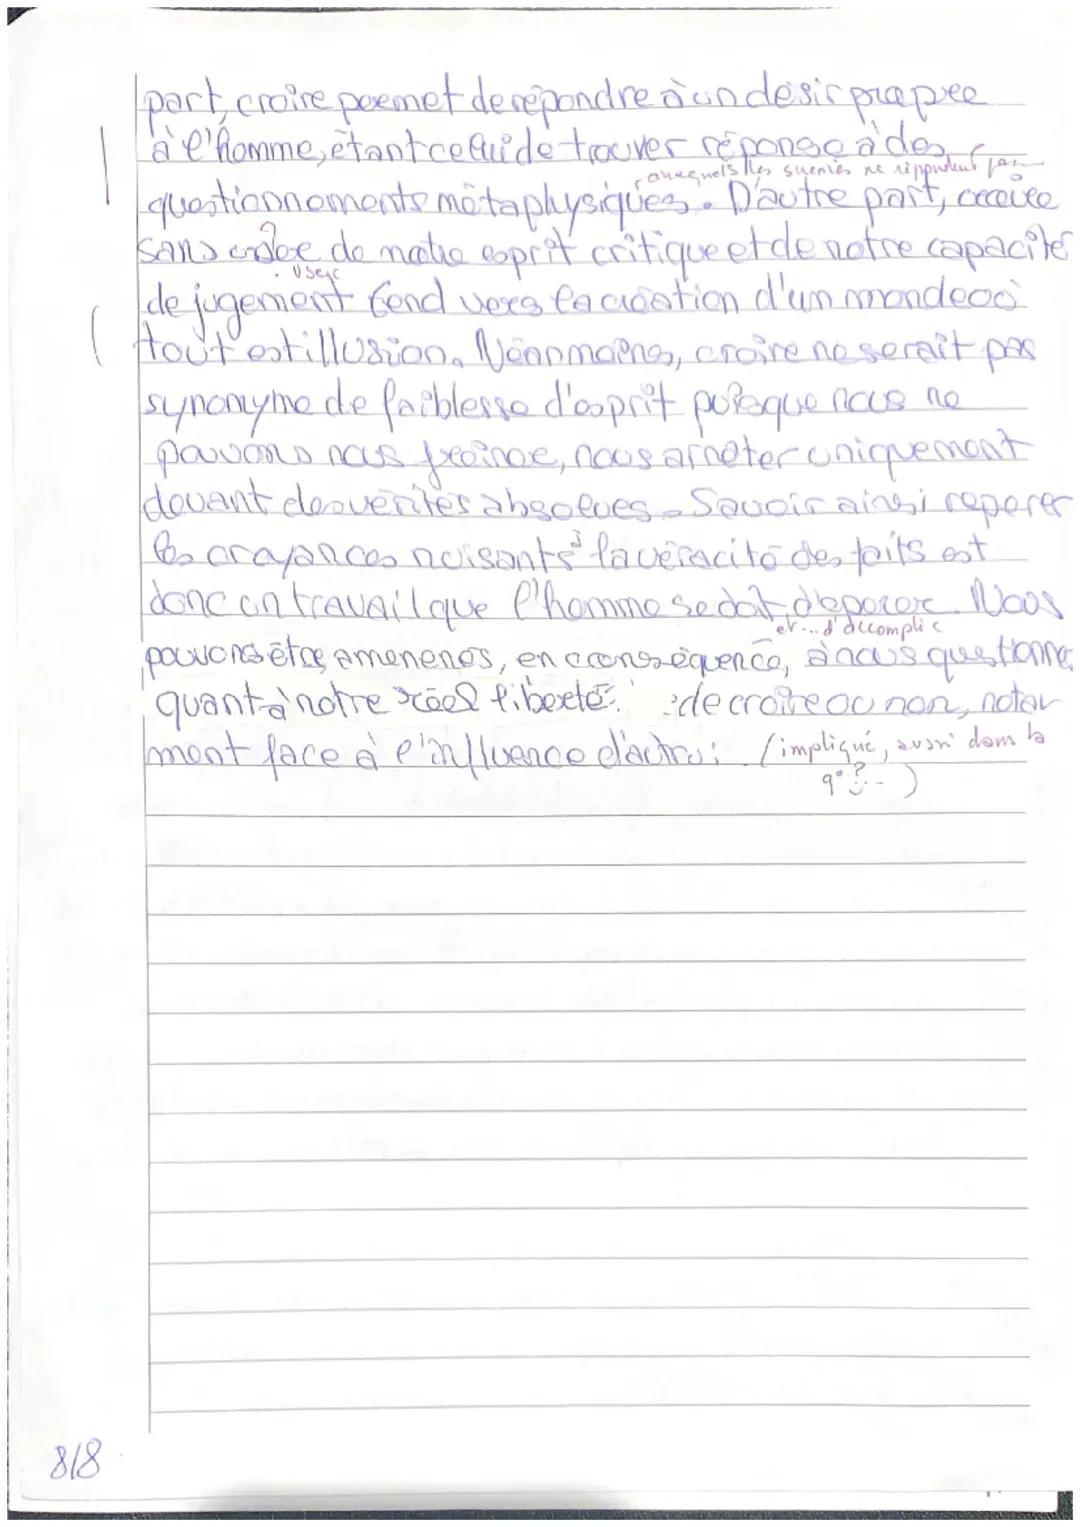 part, croire permet de répondre à un désir propre
à l'homme, étant celui de trouver réponse à des
auxquels les sciences ne répondent pas
questionnements métaphysiques. D'autre part, croire
sans de notre esprit critique et de notre capacité
user
de jugement tend vers la création d'un monde où
tout est illusion. Néanmoins, croire ne serait pas
synonyme de faiblesse d'esprit puisque nous ne
pouvons nous freiner, nous arrêter uniquement
devant des vérités absolues. Savoir ainsi reperer
à
les croyances nuisants la véracité des faits est
donc un travail que l'homme se doit d'operer. Nous
et... d'accomplir
pouvons être amenenés, en conséquence, à nous questionner
quant à notre réel liberté : de croire ou non, notam
ment face à l'influence d'autrui. (impliqué, aussi dans la
q° ?...)
8/8